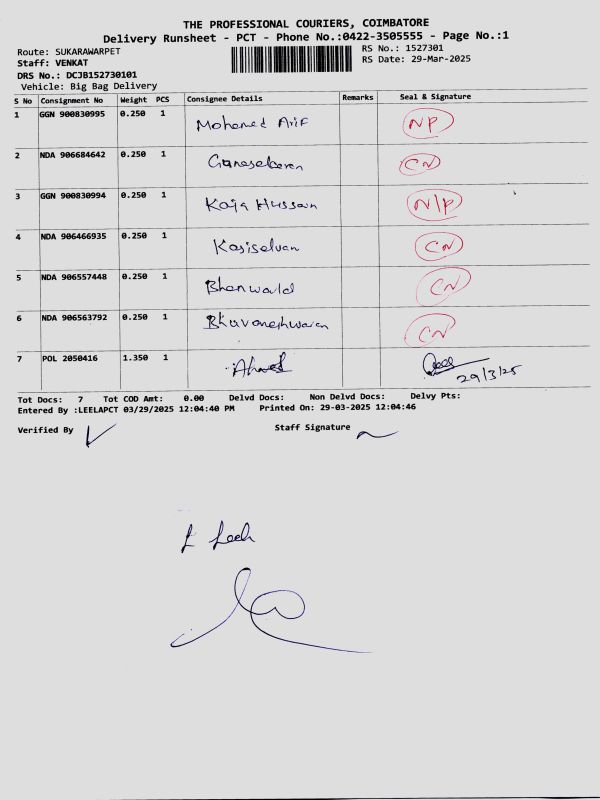 THE PROFESSIONAL COURIERS, COIMBATORE
Delivery Runsheet - PCT - Phone No.:0422-3505555 - Page No.:1
Route: SUKARAWARPET RS No.: 1527301
Staff: VENKAT RS Date: 29-Mar-2025
DRS No.: DCJB152730101
Vehicle: Big Bag Delivery
S No Consignment No Weight PCS Consignee Details Remarks Seal & Signature
1 GGN 900830995 0.250 1 Mohamed Arif NP
2 NDA 906684642 0.250 1 Ganesekaren CN
3 GGN 900830994 0.250 1 Kaja Hussain N/P
4 NDA 906466935 0.250 1 Kasiselvan CN
5 NDA 906557448 0.250 1 Bhanwarld CN
6 NDA 906563792 0.250 1 Bhuvaneshwaran CN
7 POL 2050416 1.350 1 29/3/25
Tot Docs: 7 Tot COD Amt: 0.00 Delvd Docs: Non Delvd Docs: Delvy Pts:
Entered By :LEELAPCT 03/29/2025 12:04:40 PM Printed On: 29-03-2025 12:04:46
Verified By Staff Signature